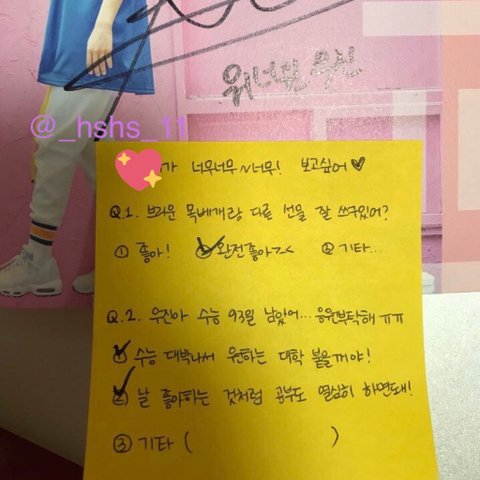 워너원 우진
@_hshs_11
가 너무너무~너무! 보고싶어♥
Q.1. 브라운 목베개랑 다른 선물 잘 쓰구있어?
① 좋아! ② 완전좋아>< ③ 기타...
Q.2. 우진아 수능 93일 남았어... 응원부탁해 ㅠㅠ
① 수능 대박나서 원하는 대학 붙을꺼야!
② 날 좋아하는 것처럼 공부도 열심히 하면돼!
③ 기타 ( )